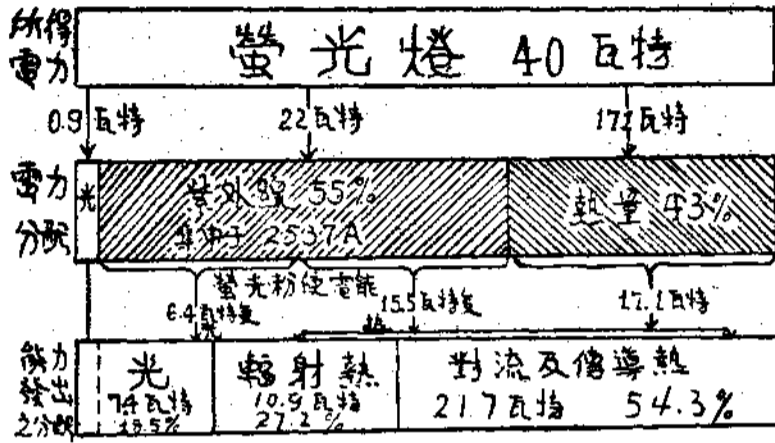 所得
電力
螢光燈 40瓦特
0.9瓦特 22瓦特 17.1瓦特
電力
分配
光
紫外線 55%
集中于 2537A
熱量 43%
螢光粉使電能
6.4瓦特變 15.5瓦特變 17.1瓦特
光 熱
能力
發出
之分配
光
7.4瓦特
18.5%
輻射熱
10.9瓦特
27.2%
對流及傳導熱
21.7瓦特 54.3%